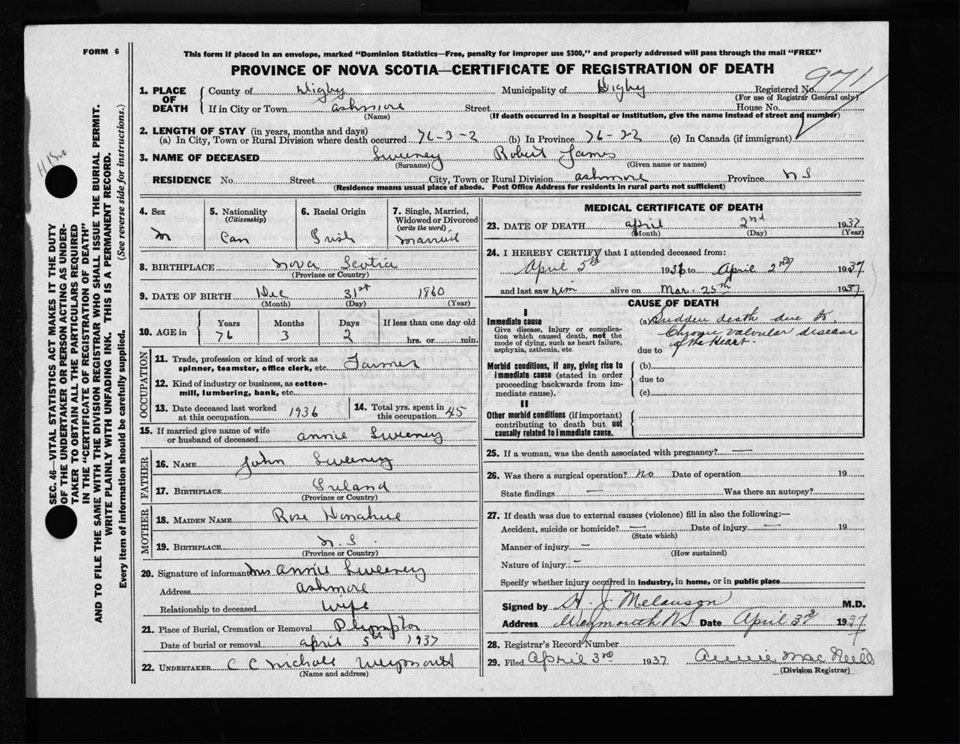 FORM 6
This form if placed in an envelope, marked "Dominion Statistics—Free, penalty for improper use $300," and properly addressed will pass through the mail "FREE"
PROVINCE OF NOVA SCOTIA—CERTIFICATE OF REGISTRATION OF DEATH
971
1. PLACE OF DEATH
County of Digby Municipality of Digby Registered No.
(For use of Registrar General only)
If in City or Town Ashmore Street House No.
(Name) (If death occurred in a hospital or institution, give the name instead of street and number)
2. LENGTH OF STAY (in years, months and days)
(a) In City, Town or Rural Division where death occurred 76-3-2 (b) In Province 76-3-2 (c) In Canada (if immigrant)
3. NAME OF DECEASED Sweeney Robert James
(Surname) (Given name or names)
RESIDENCE No. Street City, Town or Rural Division Ashmore Province N S
(Residence means usual place of abode. Post Office Address for residents in rural parts not sufficient)
4. Sex
M
5. Nationality
(Citizenship)
Can
6. Racial Origin
Irish
7. Single, Married, Widowed or Divorced
(write the word)
Married
8. BIRTHPLACE Nova Scotia
(Province or Country)
9. DATE OF BIRTH Dec 31st 1860
(Month) (Day) (Year)
10. AGE in
Years Months Days If less than one day old
76 3 2 hrs. or min.
OCCUPATION
11. Trade, profession or kind of work as
spinner, teamster, office clerk, etc. Farmer
12. Kind of industry or business, as cotton-
mill, lumbering, bank, etc.
13. Date deceased last worked
at this occupation 1936
14. Total yrs. spent in
this occupation 45
15. If married give name of wife
or husband of deceased Annie Sweeney
FATHER
16. NAME John Sweeney
17. BIRTHPLACE Ireland
(Province or Country)
MOTHER
18. MAIDEN NAME Rose Donahue
19. BIRTHPLACE N. S.
(Province or Country)
20. Signature of informant Mrs Annie Sweeney
Address Ashmore
Relationship to deceased Wife
21. Place of Burial, Cremation or Removal Plympton
Date of burial or removal April 5th 1937
22. UNDERTAKER C C Nichols Weymouth
(Name and address)
MEDICAL CERTIFICATE OF DEATH
23. DATE OF DEATH April 2nd 1937
(Month) (Day) (Year)
24. I HEREBY CERTIFY that I attended deceased from:
April 5th 1936 to April 2nd 1937
and last saw him alive on Mar-25th 1937
CAUSE OF DEATH
I
Immediate cause
Give disease, injury or complica-
tion which caused death, not the
mode of dying, such as heart failure,
asphyxia, asthenia, etc.
(a) Sudden death due to
Chronic valvular disease
of the Heart.
due to
Morbid conditions, if any, giving rise to
immediate cause (stated in order
proceeding backwards from im-
mediate cause).
(b)
due to
(c)
II
Other morbid conditions (if important)
contributing to death but not
causally related to immediate cause.
25. If a woman, was the death associated with pregnancy? —
26. Was there a surgical operation? No Date of operation 19
State findings — Was there an autopsy?
27. If death was due to external causes (violence) fill in also the following:—
Accident, suicide or homicide? — Date of injury — 19
(State which)
Manner of injury —
(How sustained)
Nature of injury —
Specify whether injury occurred in industry, in home, or in public place
Signed by H. J. Melanson M.D.
Address Weymouth N.S. Date April 3rd 1937
28. Registrar's Record Number
29. Filed April 3rd 1937 Annie Mac
(Division Registrar)
SEC. 46—VITAL STATISTICS ACT MAKES IT THE DUTY
OF THE UNDERTAKER OR PERSON ACTING AS UNDER-
TAKER TO OBTAIN ALL THE PARTICULARS REQUIRED
IN THE "CERTIFICATE OF REGISTRATION OF DEATH"
AND TO FILE THE SAME WITH THE DIVISION REGISTRAR WHO SHALL ISSUE THE BURIAL PERMIT.
WRITE PLAINLY WITH UNFADING INK. THIS IS A PERMANENT RECORD.
Every item of information should be carefully supplied. (See reverse side for instructions.)